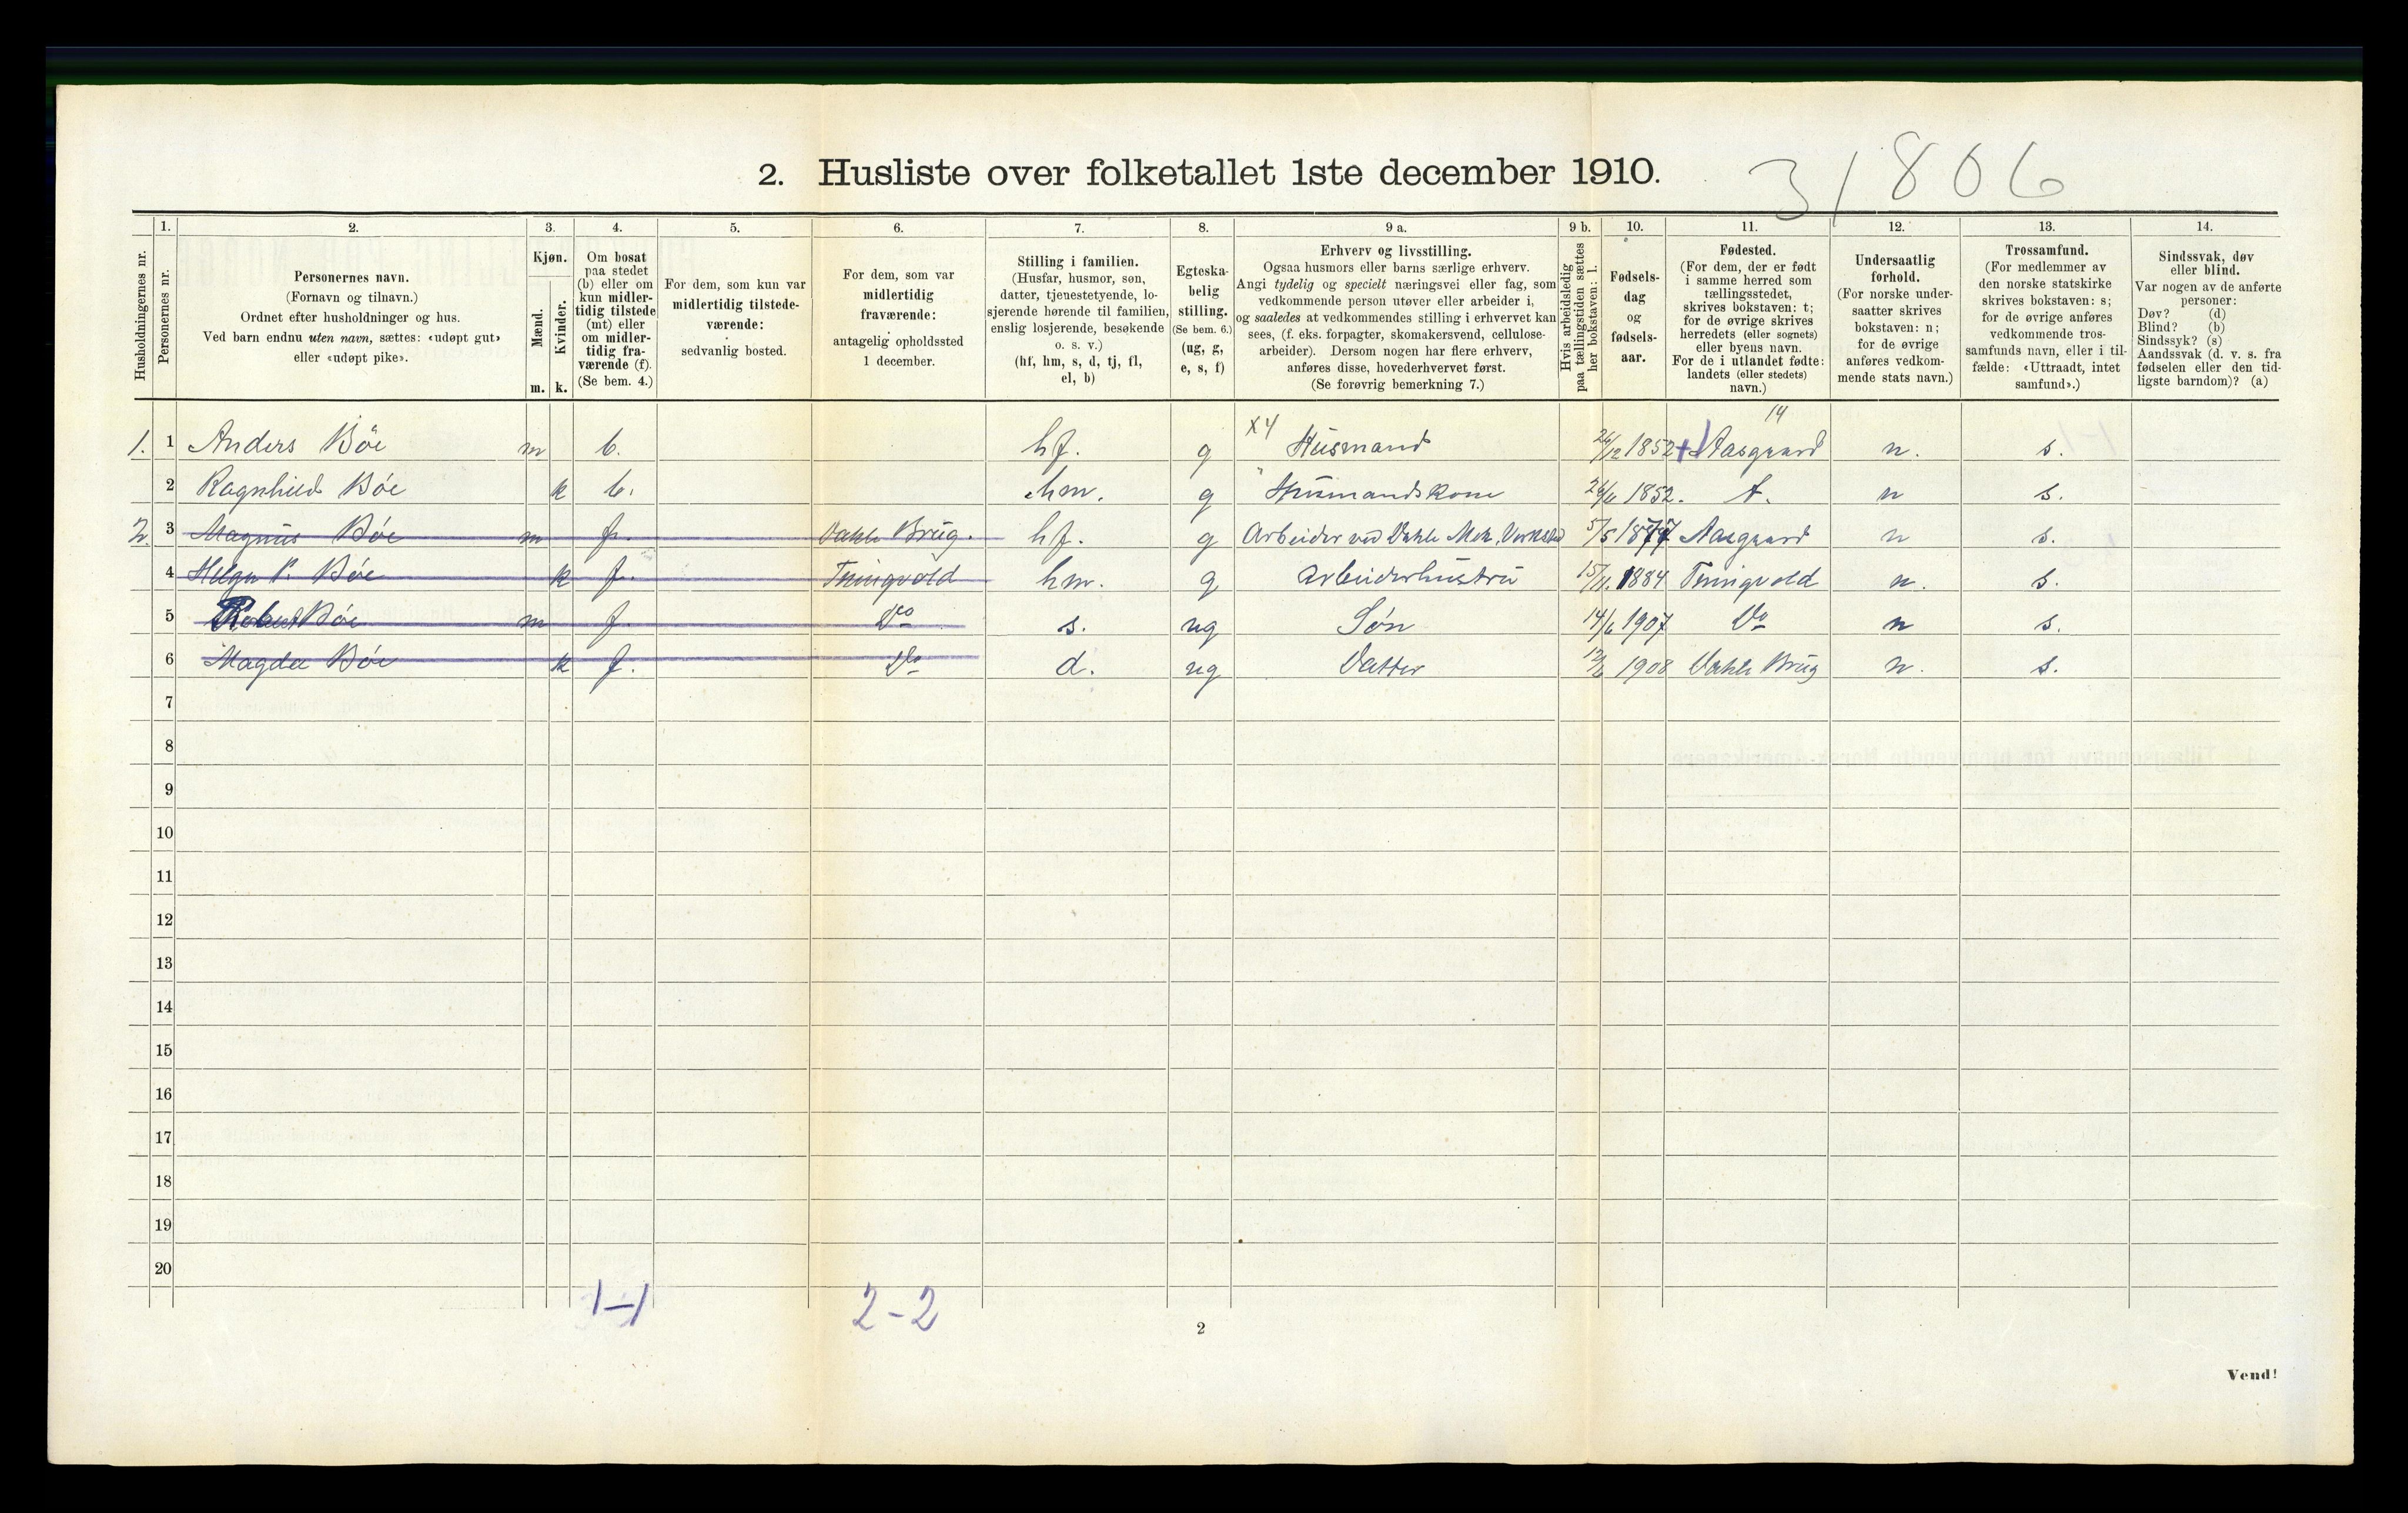 31806
2. Husliste over folketallet 1ste december 1910.
Husholdningernes nr.
1. Personernes nr.
2. Personernes navn.
(Fornavn og tilnavn.)
Ordnet efter husholdninger og hus.
Ved barn endnu uten navn, sættes: «udøpt gut»
eller «udøpt pike».
3. Kjøn.
Mænd. m.
Kvinder. k.
4. Om bosat
paa stedet
(b) eller om
kun midler-
tidig tilstede
(mt) eller
om midler-
tidig fra-
værende (f).
(Se bem. 4.)
5. For dem, som kun var
midlertidig tilstede-
værende:
sedvanlig bosted.
6. For dem, som var
midlertidig
fraværende:
antagelig opholdssted
1 december.
7. Stilling i familien.
(Husfar, husmor, søn,
datter, tjenestetyende, lo-
sjerende hørende til familien,
enslig losjerende, besøkende
o. s. v.)
(hf, hm, s, d, tj, fl,
el, b)
8. Egteska-
belig
stilling.
(Se bem. 6.)
(ug, g,
e, s, f)
9 a. Erhverv og livsstilling.
Ogsaa husmors eller barns særlige erhverv.
Angi tydelig og specielt næringsvei eller fag, som
vedkommende person utøver eller arbeider i,
og saaledes at vedkommendes stilling i erhvervet kan
sees, (f. eks. forpagter, skomakersvend, cellulose-
arbeider). Dersom nogen har flere erhverv,
anføres disse, hovederhvervet først.
(Se forøvrig bemerkning 7.)
9 b. Hvis arbeidsledig
paa tællingstiden sættes
her bokstaven: l.
10. Fødsels-
dag
og
fødsels-
aar.
11. Fødested.
(For dem, der er født
i samme herred som
tællingsstedet,
skrives bokstaven: t;
for de øvrige skrives
herredets (eller sognets)
eller byens navn.
For de i utlandet fødte:
landets (eller stedets)
navn.)
12. Undersaatlig
forhold.
(For norske under-
saatter skrives
bokstaven: n;
for de øvrige
anføres vedkom-
mende stats navn.)
13. Trossamfund.
(For medlemmer av
den norske statskirke
skrives bokstaven: s;
for de øvrige anføres
vedkommende tros-
samfunds navn, eller i til-
fælde: «Uttraadt, intet
samfund».)
14. Sindssvak, døv
eller blind.
Var nogen av de anførte
personer:
Døv? (d)
Blind? (b)
Sindssyk? (s)
Aandssvak (d. v. s. fra
fødselen eller den tid-
ligste barndom)? (a)
X4 14
1. 1 Anders Böe m b. hf. g Husmand 26/12 1852 Aasgaard n. s.
2 Ragnhild Bóe k b. hm. g Husmandskone 1852. t. n s.
2. 3 Magnus Bóe m f. Vahle Brug. hf. g Arbeider ved Vahle Mek. Verksted 5/5 Aasgaard n s.
4 Helga P. Bóe k f. Tningvold hm. g Arbeiderhustru 15/11. 1884 Tningvold n. s.
5 Robert Bóe m f. Do s. ug Søn 14/6 1907 Do n s.
6 Magda Bóe k f. Do d. ug Datter 1908 Vahle Brug n. s.
7
8
9
10
11
12
13
14
15
16
17
18
19
20
1-1 2-2
2
Vend!